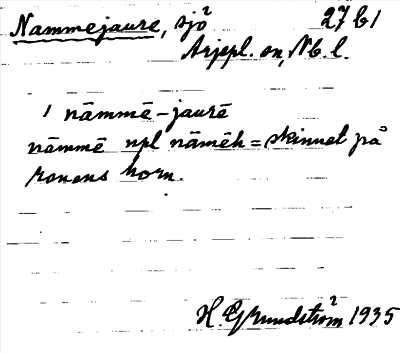 Nammejaure, sjö 27 b1
Arjepl. sn, Nb. l.
1 nāmmē-jaurē
nāmmē npl nāmēh = skinnet på
renens horn.
H. Grundström 1935